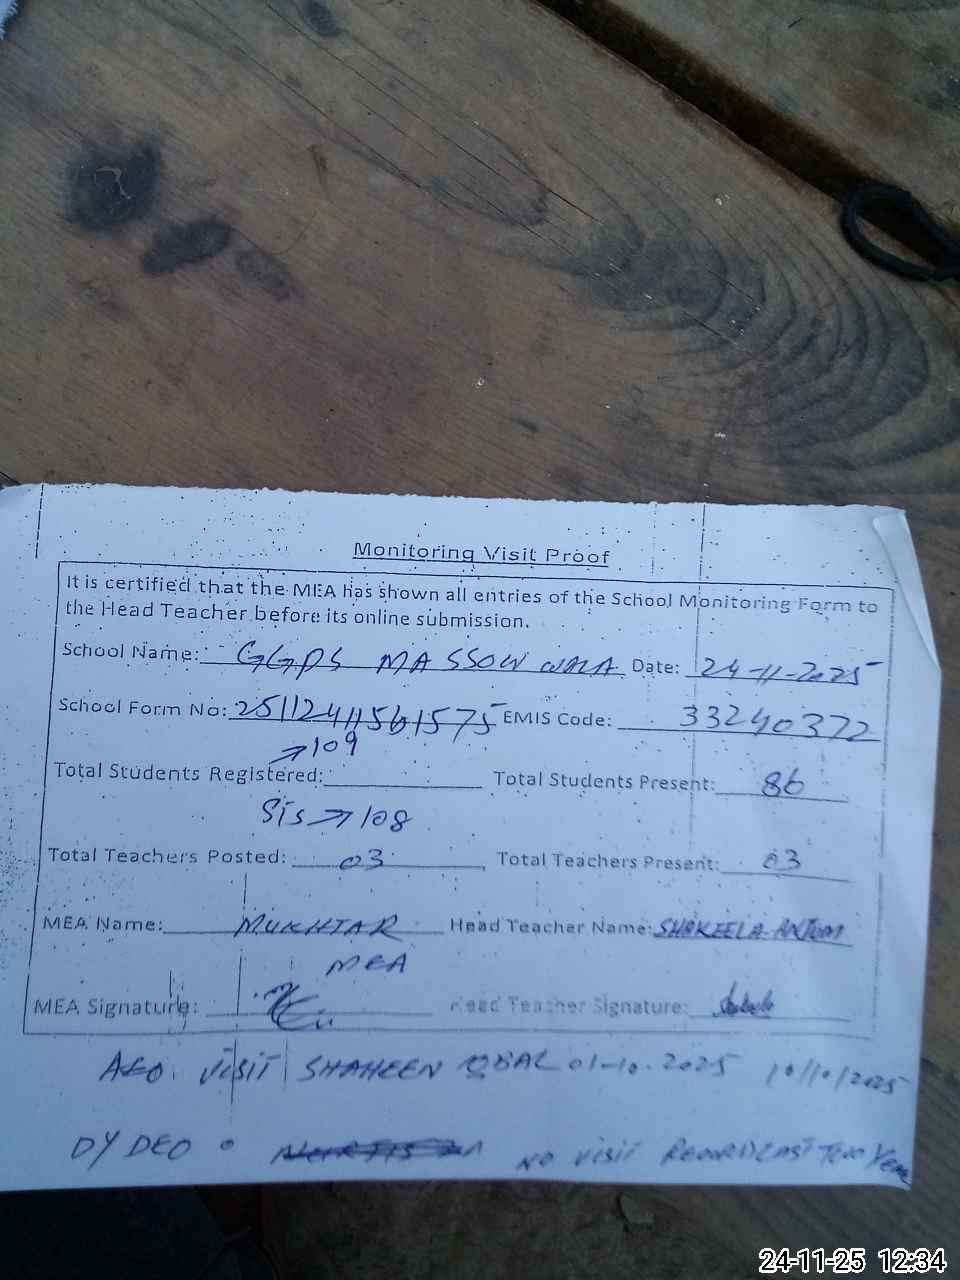 Monitoring Visit Proof
It is certified that the MEA has shown all entries of the School Monitoring Form to
the Head Teacher before its online submission.
School Name: GGPS MASSOW WALA Date: 24-11-2025
School Form No: 25112411561575 EMIS Code: 33240372
→109
Total Students Registered: Total Students Present: 86
SIS → 108
Total Teachers Posted: 03 Total Teachers Present: 03
MEA Name: MUKHTAR Head Teacher Name: SHAKEELA ANJUM
MEA
MEA Signature: Head Teacher Signature:
AEO. VISIT SHAHEEN IQBAL 01-10-2025 10/10/2025
DY DEO NO VISIT RECORD LAST TWO Year
24-11-25 12:34